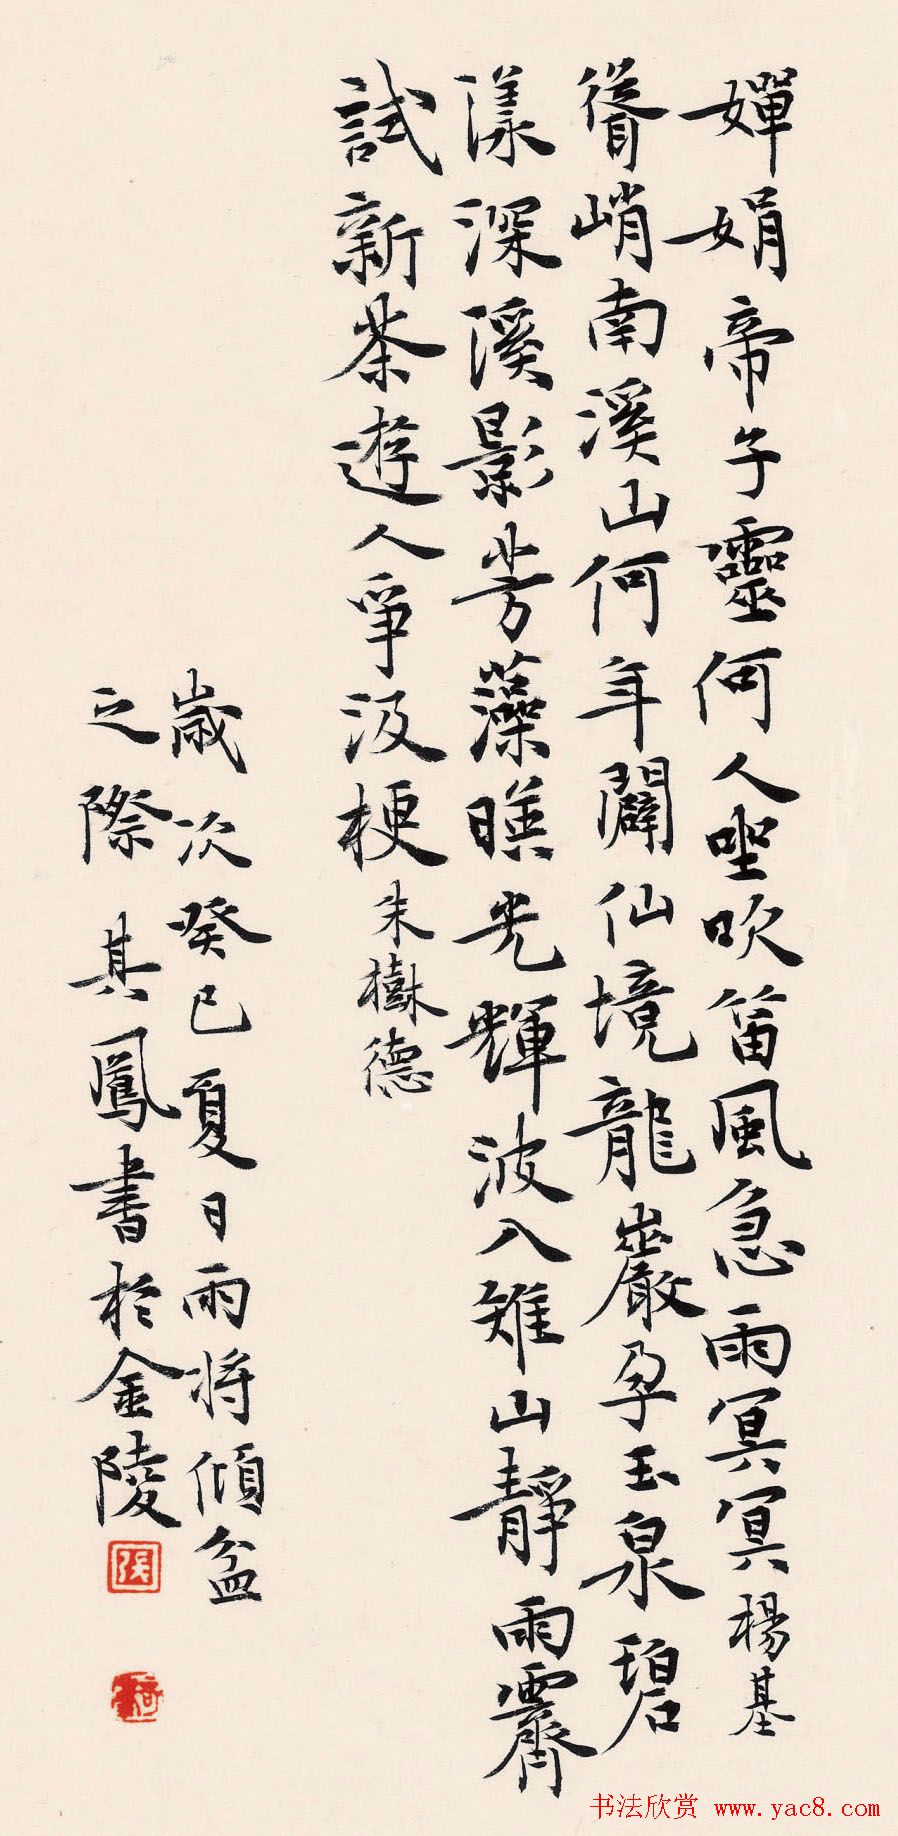 嬋娟帝子靈何人坐吹笛風急雨冥冥楊基
聳峭南溪山何年闢仙境龍巖孕玉泉碧
漾深溪影芳藻暎光輝波入雉山靜雨霽
試新茶遊人爭汲梗朱樹德
歲次癸巳夏日雨將傾盆
之際其鳳書於金陵
张
书法欣赏 www.yac8.com